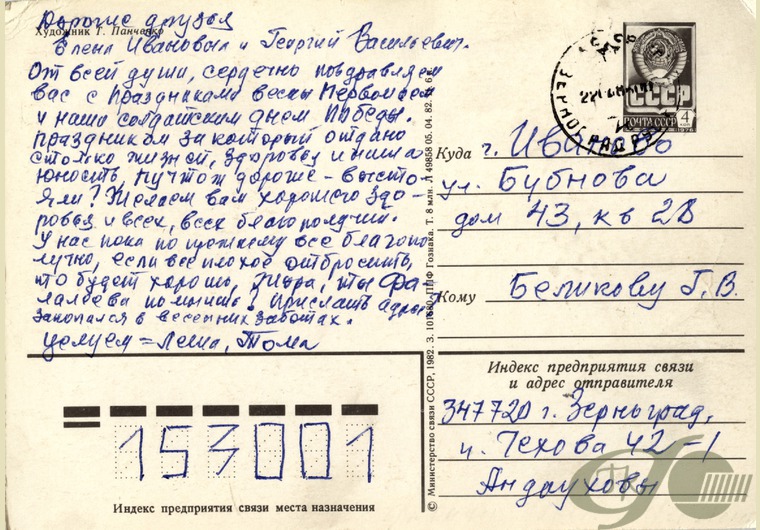 Дорогие друзья
Художник Т. Панченко
Елена Ивановна и Георгий Васильевич.
От всей души, сердечно поздравляем
вас с праздниками весны Первомаем
и наши солдатским днем Победы.
праздником за который отдано
столько жизней, здоровья и наша
юность, ну что ж дороже - высто-
яли! Желаем вам хорошего здо-
ровья и всех, всех благополучий.
У нас пока по прежнему все благопо
лучно, если все плохое отбросить,
то будет хорошо, Жора, ты Фа-
лалеева помнишь?
закопался в весенних заботах.
целуем = Леша, Тома
СССР
ПОЧТА СССР
4
1976
Куда г. Иваново
ул. Бубнова
дом 43, кв 28
Кому Беликову Г. В.
Индекс предприятия связи
и адрес отправителя
347720 г. Зерноград,
Чехова 42-1
Андруховы
153001
Индекс предприятия связи места назначения
© Министерство связи СССР, 1982. З. 101680. ППФ Гознака. Т. 8 млн. Л 49858 05. 04. 82. Ц. 6 к.